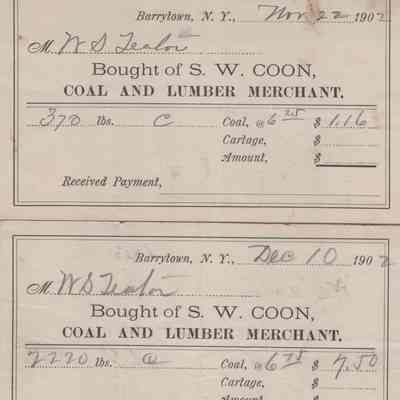 Barrytown, N. Y., Nov 22 1902
M. W S Teator
Bought of S. W. COON,
COAL AND LUMBER MERCHANT.
370 lbs. C Coal, @ 6 25 $ 1.16
Cartage, $
Amount, $
Received Payment,
Barrytown, N. Y., Dec 10 1902
M. W S Teator
Bought of S. W. COON,
COAL AND LUMBER MERCHANT.
2220 lbs. C Coal, @ 6 75 $ 7.50
Cartage, $
Amount, $